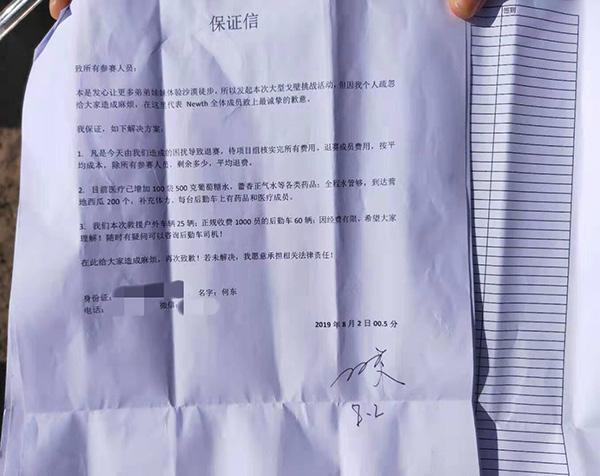 保证信
签到
致所有参赛人员：
本是发心让更多弟弟妹妹体验沙漠徒步，所以发起本次大型戈壁挑战活动，但因我个人疏忽
给大家造成麻烦，在这里代表 Newth 全体成员致上最诚挚的歉意。
我保证，如下解决方案：
1．凡是今天由我们造成的困扰导致退赛，待项目组核实完所有费用，退赛成员费用，按平
均成本，除所有参赛人员，剩余多少，平均退费。
2．目前医疗已增加 100 袋 500 克葡萄糖水，藿香正气水等各类药品；全程水管够，到达营
地西瓜 200 个；补充体力，每台后勤车上有药品和医疗成员。
3．我们本次救援户外车辆 25 辆；正规收费 1000 员的后勤车 60 辆；因经费有限，希望大家
理解！随时有疑问可以咨询后勤车司机！
在此给大家造成麻烦，再次致歉！若未解决，我愿意承担相关法律责任！
身份证： 名字：何东
电话： 微信
2019 年 8 月 2 日 00.5 分
8-2